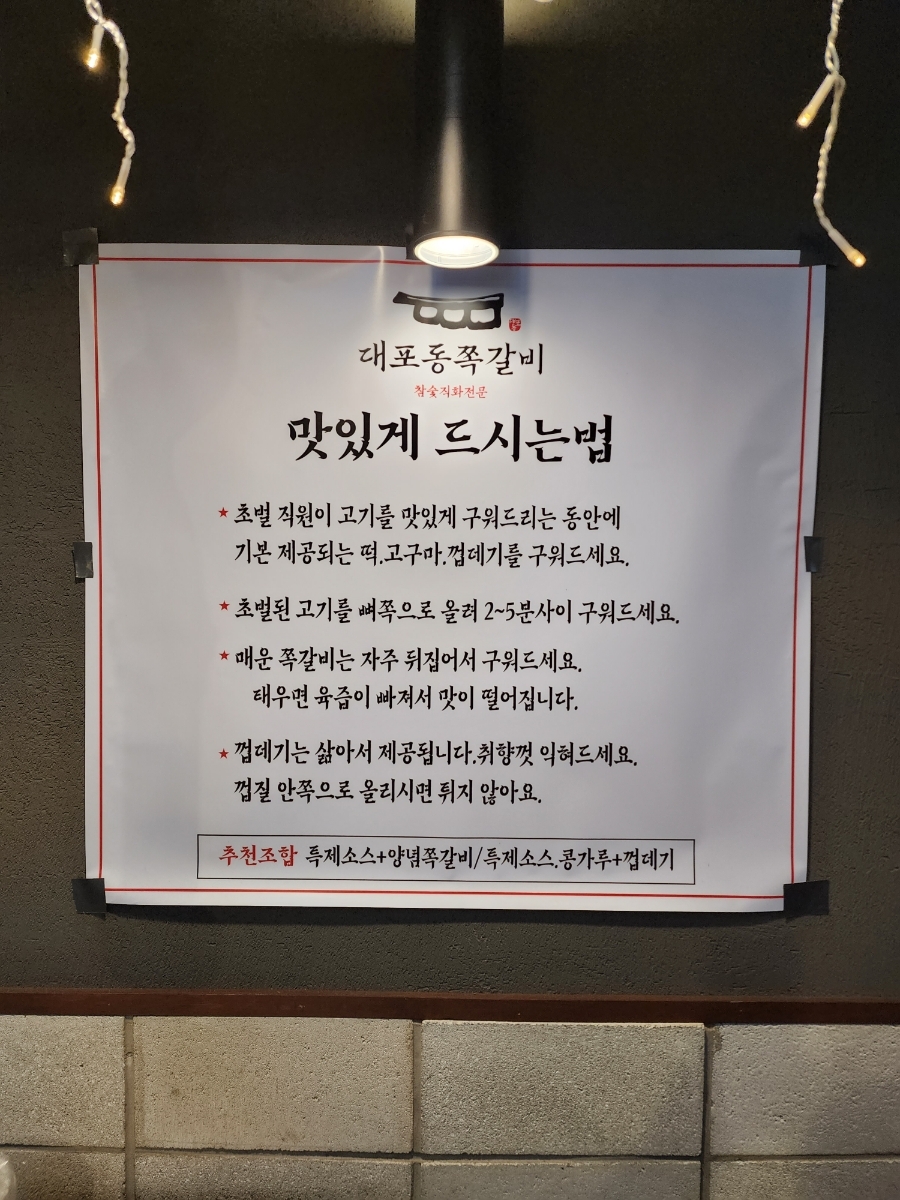 대포동쪽갈비
참숯직화전문
맛있게 드시는법
★ 초벌 직원이 고기를 맛있게 구워드리는 동안에
기본 제공되는 떡.고구마.껍데기를 구워드세요.
★ 초벌된 고기를 뼈쪽으로 올려 2~5분사이 구워드세요.
★ 매운 쪽갈비는 자주 뒤집어서 구워드세요.
태우면 육즙이 빠져서 맛이 떨어집니다.
★ 껍데기는 삶아서 제공됩니다.취향껏 익혀드세요.
껍질 안쪽으로 올리시면 튀지 않아요.
추천조합 특제소스+양념쪽갈비/특제소스.콩가루+껍데기